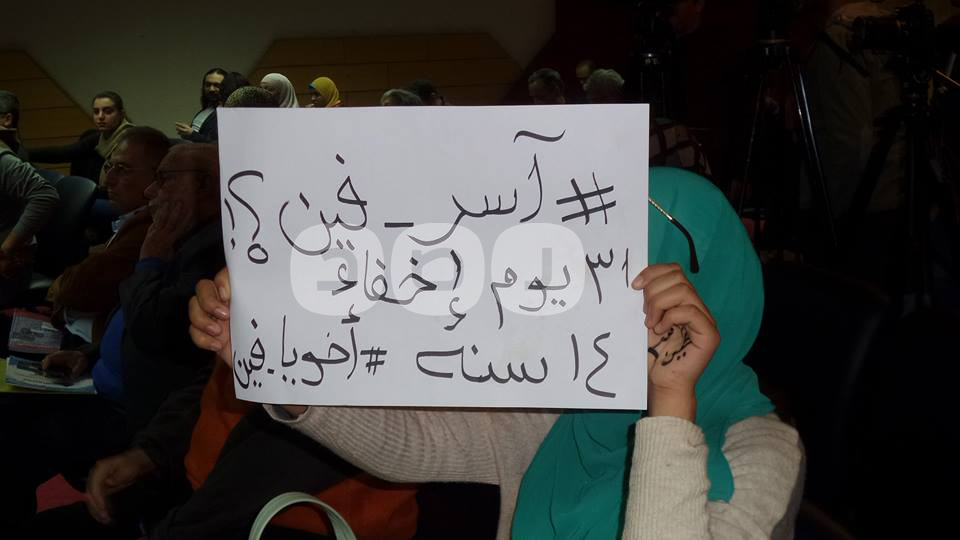 #آسر_فين؟!
٣١ يوم إخفاء
١٤ سنه #أخويا_فين
رصد